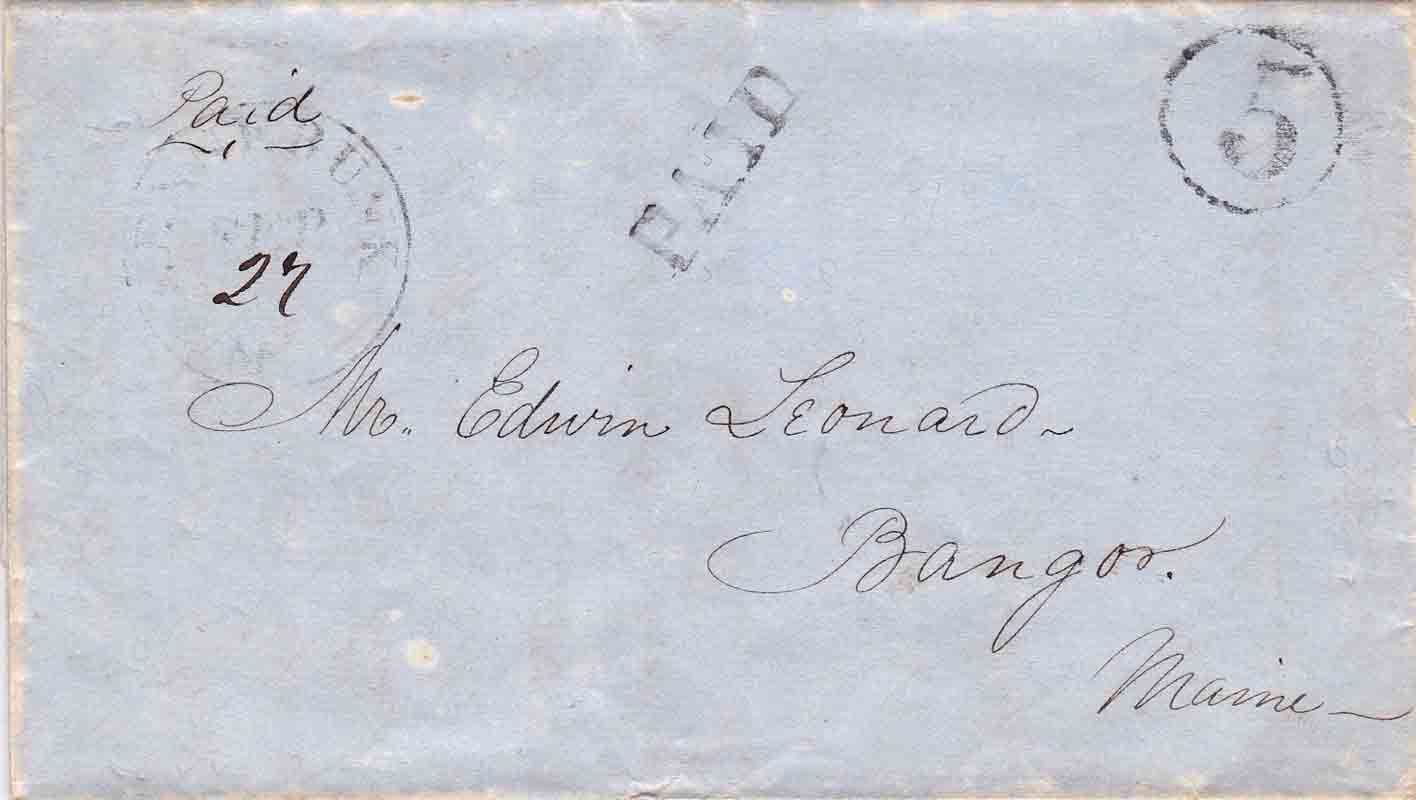 Paid
PAID
5
SEP
27
Mr. Edwin Leonard
Bangor.
Maine